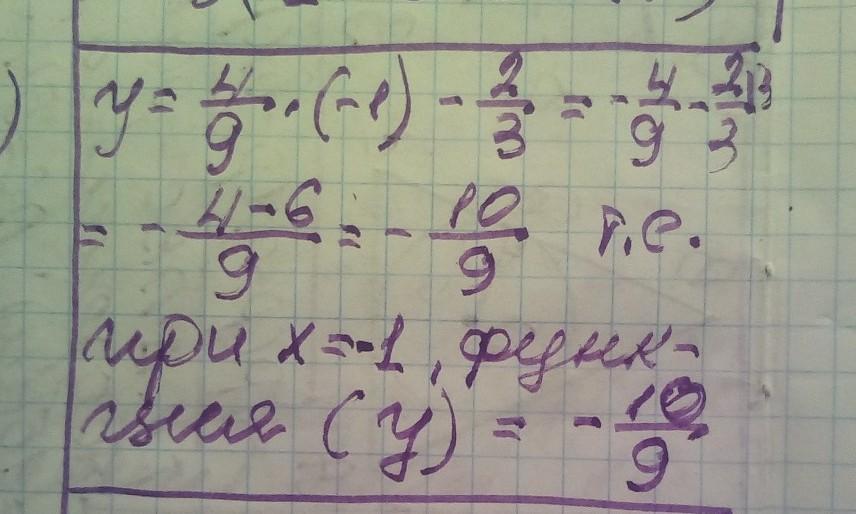 y = 4/9 · (-1) - 2/3 = - 4/9 - 2/3 |3
= - 4-6/9 = - 10/9 т.е.
при x=-1, функ-
ция (y) = - 10/9